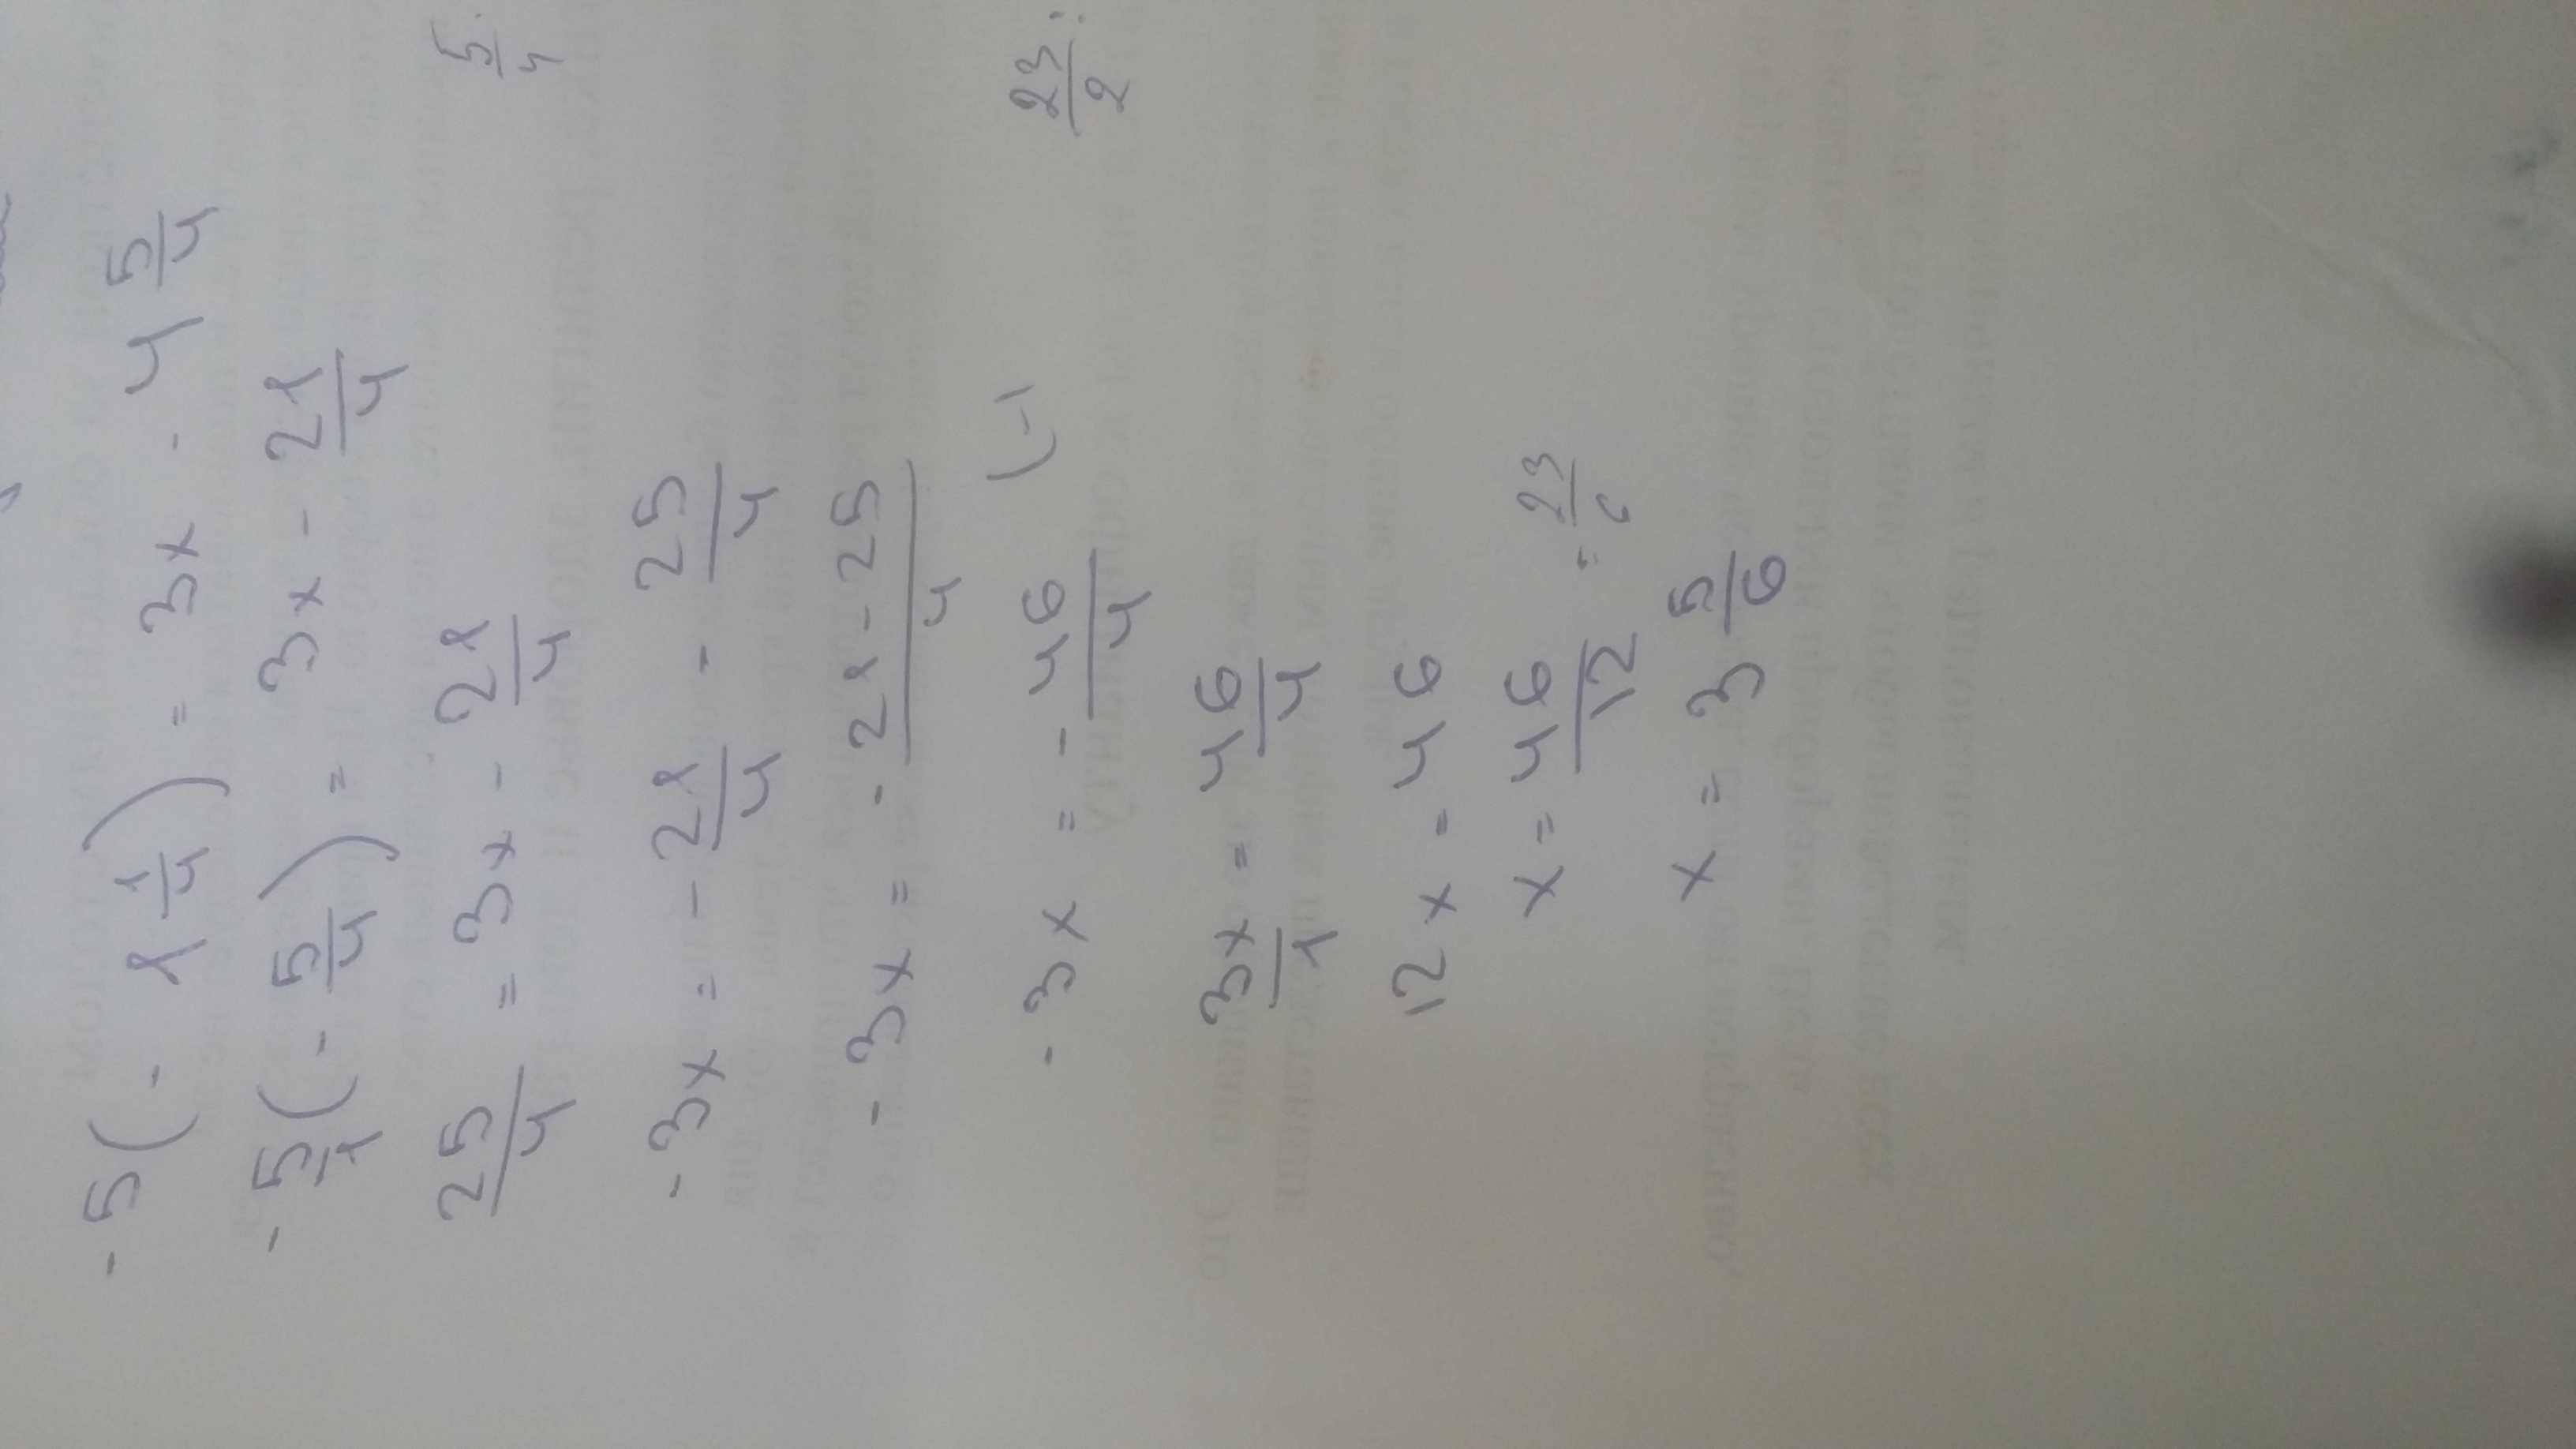 -5(-1 1/4) = 3x - 4 5/4
-5/1(-5/4) = 3x - 21/4
25/4 = 3x - 21/4
5/4
-3x = -21/4 - 25/4
-3x = -21-25/4
-3x = -46/4 (-1
23/2
3x/1 = 46/4
12x = 46
x = 46/12 = 23/6
x = 3 5/6